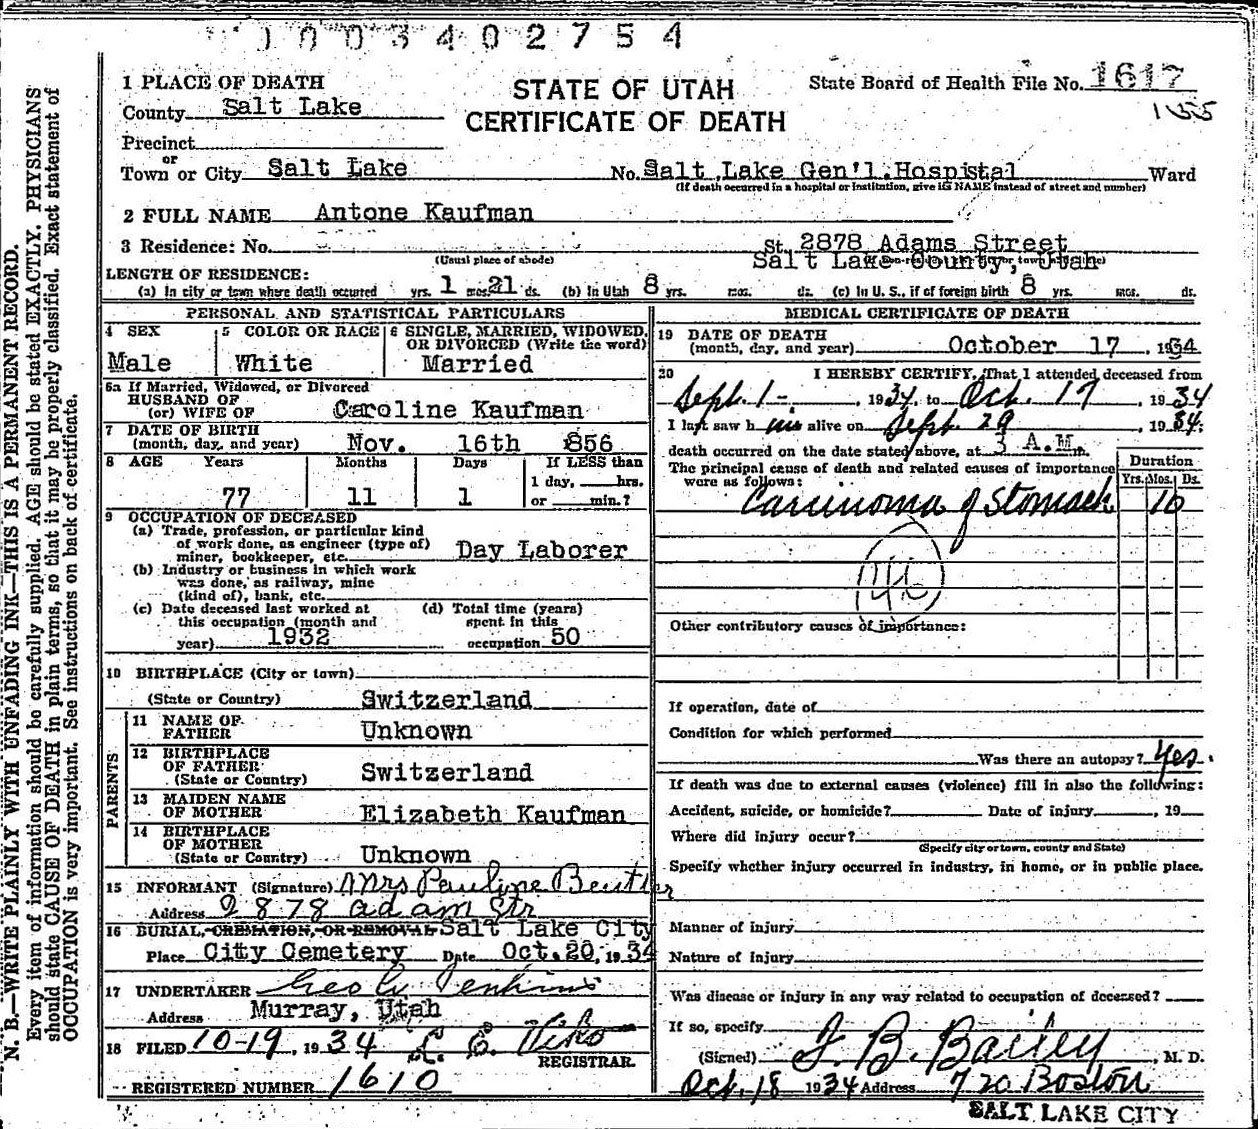 1003402754
1 PLACE OF DEATH
STATE OF UTAH
CERTIFICATE OF DEATH
State Board of Health File No. 1617
1655
County Salt Lake
Precinct
or
Town or City Salt Lake No. Salt Lake Gen'l. Hospistal Ward
(If death occurred in a hospital or institution, give its NAME instead of street and number)
2 FULL NAME Antone Kaufman
3 Residence: No. St. 2878 Adams Street
(Usual place of abode) Salt Lake County, Utah
LENGTH OF RESIDENCE:
(a) In city or town where death occurred yrs. 1 mos. 21 ds. (b) In Utah 8 yrs. mos. ds. (c) In U. S., if of foreign birth 8 yrs. mos. ds.
PERSONAL AND STATISTICAL PARTICULARS
4 SEX
Male
5 COLOR OR RACE
White
6 SINGLE, MARRIED, WIDOWED,
OR DIVORCED (Write the word)
Married
6a If Married, Widowed, or Divorced
HUSBAND OF
(or) WIFE OF Caroline Kaufman
7 DATE OF BIRTH
(month, day, and year) Nov. 16th 856
8 AGE Years Months Days If LESS than
1 day, hrs.
77 11 1 or min.?
9 OCCUPATION OF DECEASED
(a) Trade, profession, or particular kind
of work done, as engineer (type of)
miner, bookkeeper, etc. Day Laborer
(b) Industry or business in which work
was done, as railway, mine
(kind of), bank, etc.
(c) Date deceased last worked at
this occupation (month and
year) 1932
(d) Total time (years)
spent in this
occupation 50
10 BIRTHPLACE (City or town)
(State or Country) Switzerland
PARENTS
11 NAME OF
FATHER Unknown
12 BIRTHPLACE
OF FATHER
(State or Country) Switzerland
13 MAIDEN NAME
OF MOTHER Elizabeth Kaufman
14 BIRTHPLACE
OF MOTHER
(State or Country) Unknown
15 INFORMANT (Signature) Mrs Pauline Beutler
Address 2878 Adam Str
16 BURIAL, CREMATION, OR REMOVAL Salt Lake City
Place City Cemetery Date Oct. 20, 1934
17 UNDERTAKER Geo Jenkins
Address Murray, Utah
18 FILED 10-19, 1934 L. E. Viko
REGISTRAR.
REGISTERED NUMBER 1610
MEDICAL CERTIFICATE OF DEATH
19 DATE OF DEATH
(month, day, and year) October 17, 1934
20 I HEREBY CERTIFY, That I attended deceased from
Sept. 1-, 1934, to Oct. 17 1934
I last saw h im alive on Sept. 29, 1934;
death occurred on the date stated above, at 3 A.M. m.
The principal cause of death and related causes of importance
were as follows:
Duration
Yrs. Mos. Ds.
Carcinoma of Stomach 10
46
Other contributory causes of importance:
If operation, date of
Condition for which performed
Was there an autopsy? Yes.
If death was due to external causes (violence) fill in also the following:
Accident, suicide, or homicide? Date of injury, 19
Where did injury occur?
(Specify city or town, county and State)
Specify whether injury occurred in industry, in home, or in public place.
Manner of injury
Nature of injury
Was disease or injury in any way related to occupation of deceased?
If so, specify
(Signed) J. B. Bailey, M. D.
Oct. 18 1934 Address 720 Boston
SALT LAKE CITY
N. B.—WRITE PLAINLY WITH UNFADING INK—THIS IS A PERMANENT RECORD.
Every item of information should be carefully supplied. AGE should be stated EXACTLY. PHYSICIANS
should state CAUSE OF DEATH in plain terms, so that it may be properly classified. Exact statement of
OCCUPATION is very important. See instructions on back of certificate.